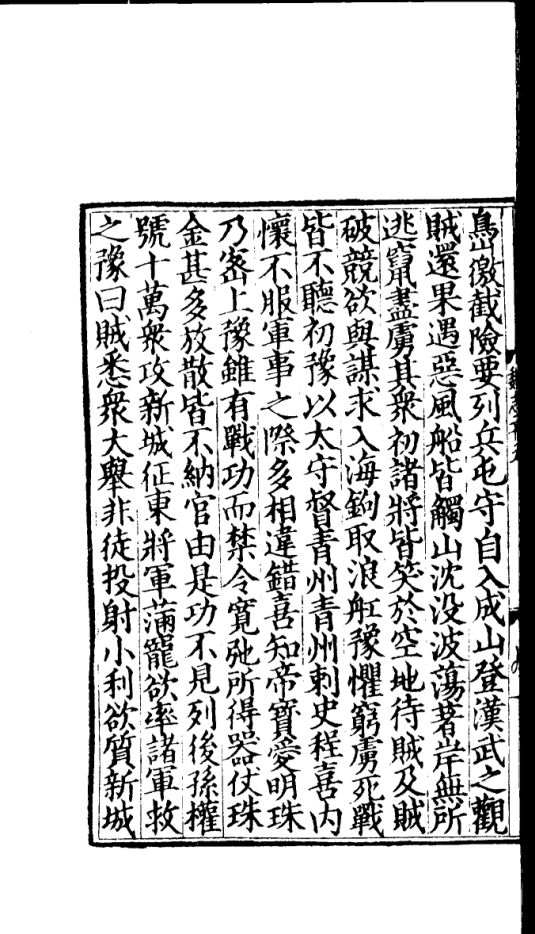 島徼截險要列兵屯守自入成山登漢武之觀
賊還果遇惡風船皆觸山沈没波蕩著岸無所
逃竄盡虜其衆初諸將皆笑於空地待賊及賊
破競欲與謀求入海鉤取浪舡豫懼窮虜死戰
皆不聽初豫以太守督青州青州刺史程喜内
懷不服軍事之際多相違錯喜知帝寶愛明珠
乃宻上豫雖有戰功而禁令寛弛所得器仗珠
金甚多放散皆不納官由是功不見列後孫權
號十萬衆攻新城征東將軍蒲寵欲率諸軍救
之豫曰賊悉衆大舉非徒投射小利欲質新城